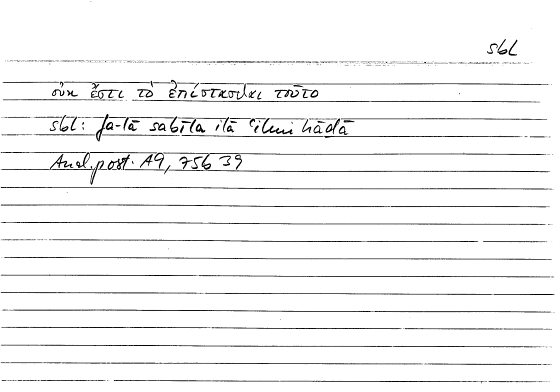 sbl
οὐκ ἔστι τὸ ἐπίστασθαι τοῦτο
sbl: fa-lā sabīla ilā ʿilmi hāḏā
Anal. post. A9, 75b 39